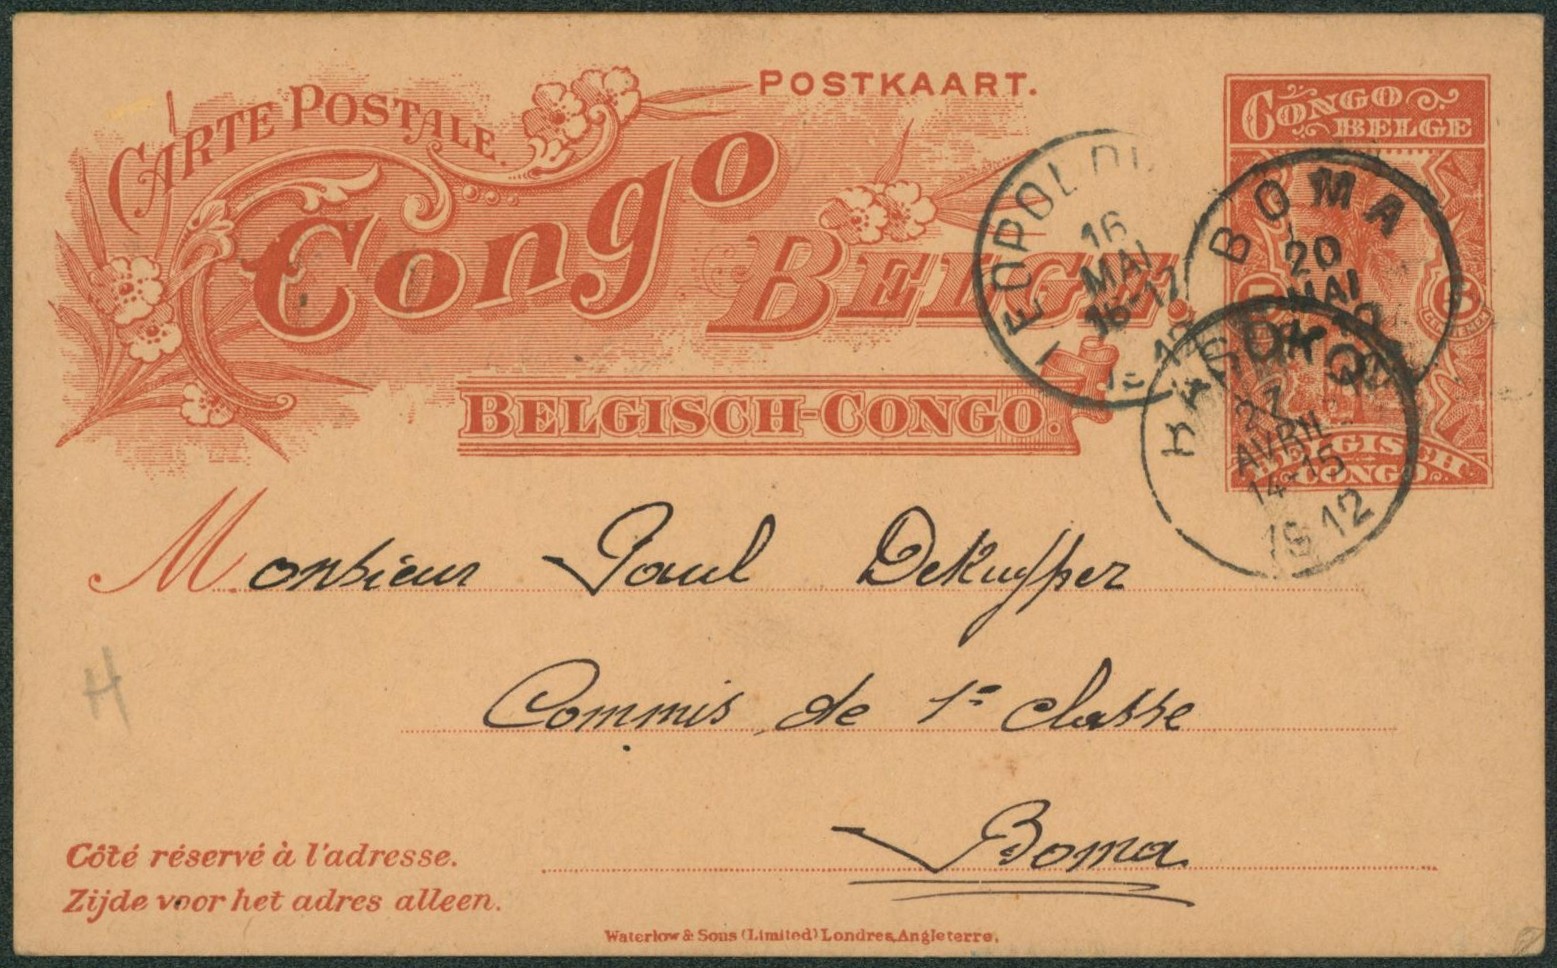 CARTE POSTALE.
POSTKAART.
Congo
BELGE.
BELGISCH-CONGO.
CONGO
BELGE
BELGISCH
CONGO
16
MAI
16-17
BOMA
20
MAI
27
AVRIL
14-15
1912
Monsieur Paul DeKuyper
Commis de 1re classe
Boma
H
Côté réservé à l'adresse.
Zijde voor het adres alleen.
Waterlow & Sons (Limited) Londres, Angleterre.